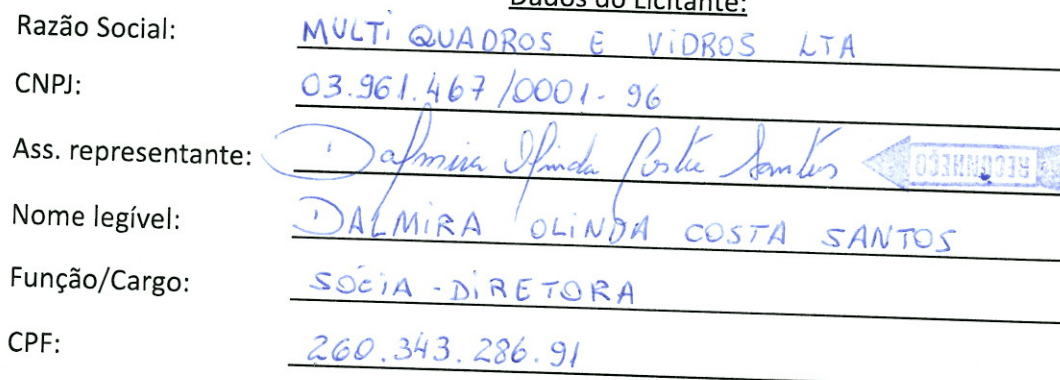 Dados do Licitante:
Razão Social: MULTI QUADROS E VIDROS LTA
CNPJ: 03.961.467/0001-96
Ass. representante: Dalmira Olinda Costa Santos RECONHEÇO
Nome legível: DALMIRA OLINDA COSTA SANTOS
Função/Cargo: SÓCIA-DIRETORA
CPF: 260.343.286.91